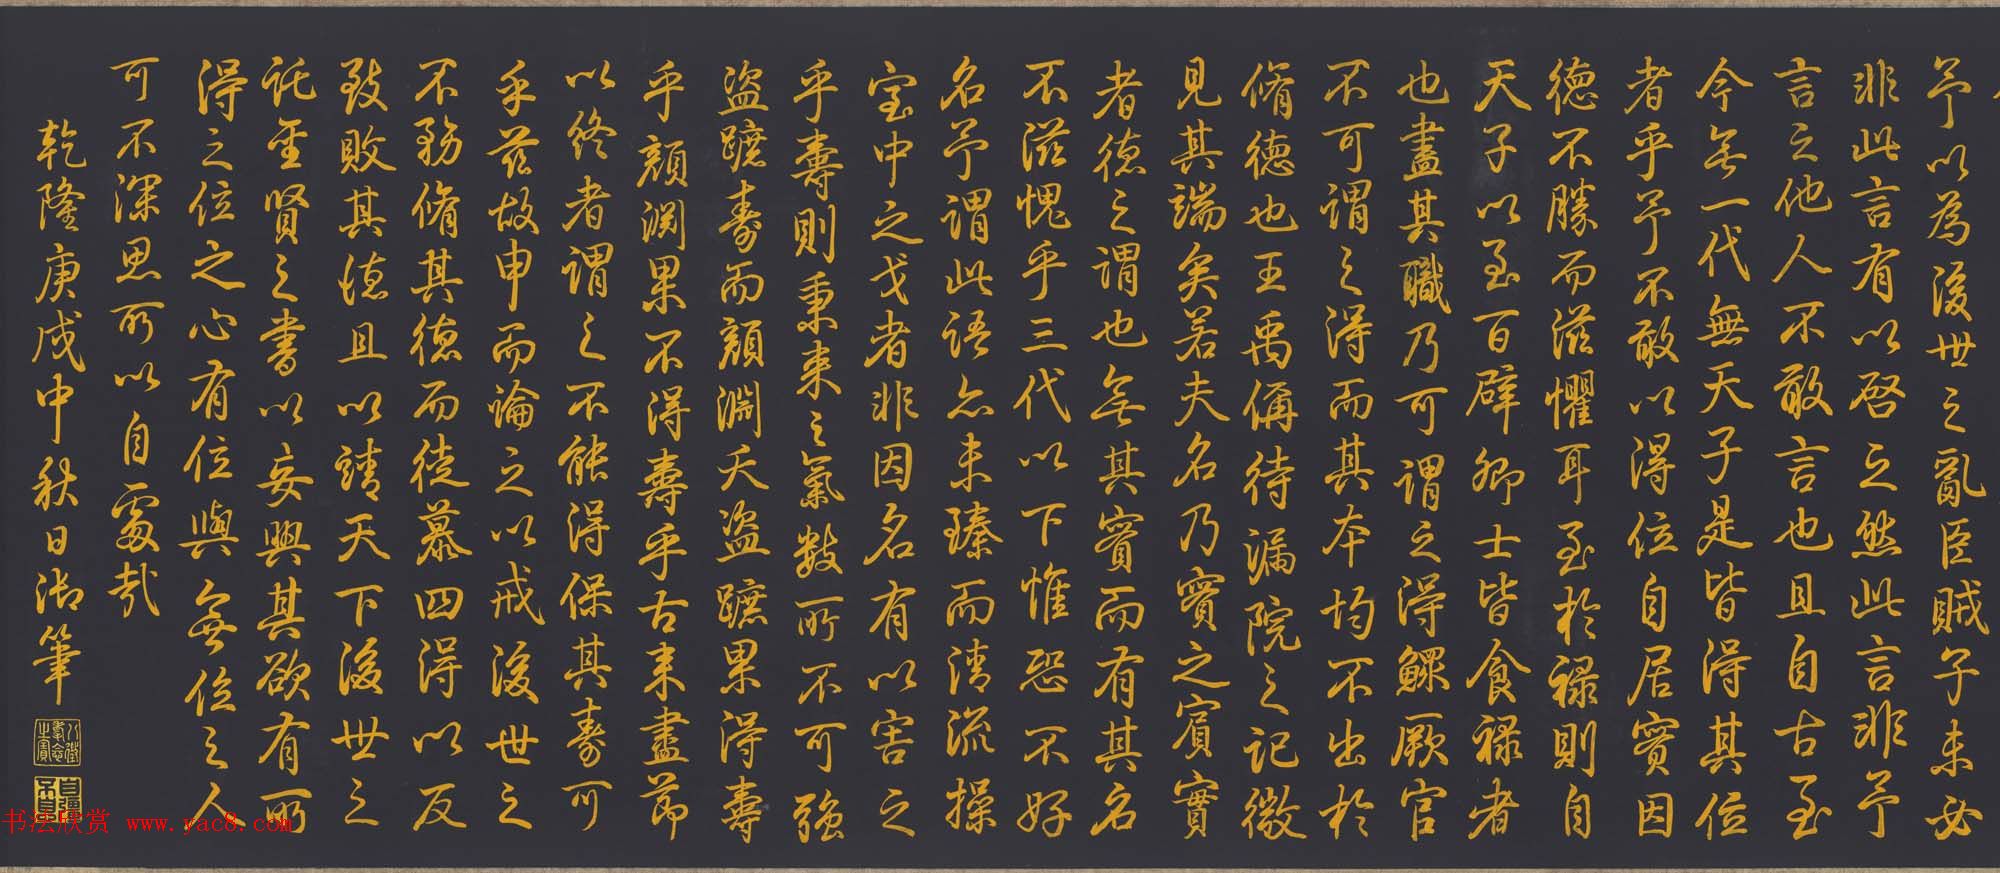 予以為後世之亂臣賊子未必
非此言有以啓之然此言非予
言之他人不敢言也且自古至
今無一代無天子是皆得其位
者乎予不敢以得位自居實因
德不勝而滋懼耳至於祿則自
天子以至百辟卿士皆食祿者
也盡其職乃可謂之得鰥厥官
不可謂之得而其本均不出於
脩德也王禹偁待漏院之記微
見其端矣若夫名乃實之賓實
者德之謂也無其實而有其名
不滋愧乎三代以下惟恐不好
名予謂此語亦未臻而清流操
室中之戈者非因名有以害之
乎壽則秉來之氣數所不可強
盜蹠壽而顏淵夭盜蹠果得壽
乎顏淵果不得壽乎古來盡節
以終者謂之不能得保其壽可
乎茲故申而論之以戒後世之
不務脩其德而徒慕四得以反
致敗其德且以靖天下後世之
託聖賢之書以妄興其欲有所
得之位之心有位與無位之人
可不深思所以自處哉
乾隆庚戌中秋日御筆
八徵耄念之寶
自彊不息
书法欣赏 www.yac8.com